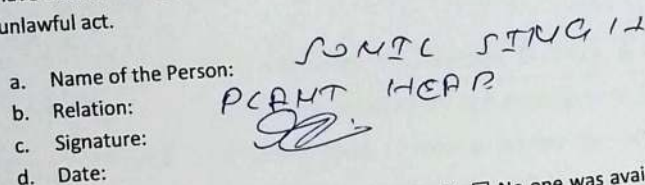 unlawful act.
a. Name of the Person: SUNIL SINGH
b. Relation: PLANT HEAD
c. Signature:
d. Date:
No one was avai